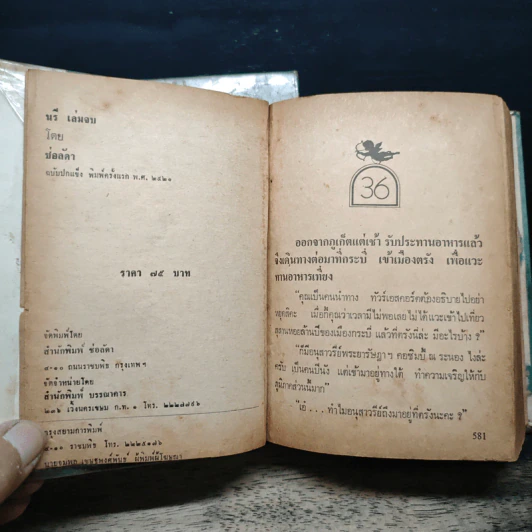 นรี เล่มจบ
โดย
ช่อลัดา
ฉบับปกแข็ง พิมพ์ครั้งแรก พ.ศ. ๒๕๒๑
ราคา ๗๕ บาท
จัดพิมพ์โดย
สำนักพิมพ์ ช่อลัดา
๕-๑๐ ถนนราชบพิธ กรุงเทพฯ
จัดจำหน่ายโดย
สำนักพิมพ์ บรรณาคาร
๒๓๖ เวิ้งนครเขษม ก.ท. ๑ โทร. ๒๒๒๗๗๙๖
กรุงสยามการพิมพ์
๕-๑๐ ราชบพิธ โทร. ๒๒๒๕๑๗๖
36
ออกจากภูเก็ตแต่เช้า รับประทานอาหารแล้ว
จึงเดินทางต่อมาที่กระบี่ เข้าเมืองตรัง เพื่อแวะ
ทานอาหารเที่ยง
"คุณเป็นคนนำทาง ทัวร์เอสคอร์ตต้องอธิบายไปอย่า
หยุดสิคะ เมื่อกี้คุณว่าเวลามีไม่พอเลยไม่ได้แวะเข้าไปเที่ยว
สุสานหอยล้านปีของเมืองกระบี่ แล้วที่ตรังนี่ล่ะ มีอะไรบ้าง ?"
"ก็มีอนุสาวรีย์พระยารัษฎาฯ คอซิมบี้ ณ ระนอง ไงล่ะ
ครับ เป็นคนปีนัง แต่เข้ามาอยู่ทางใต้ ทำความเจริญให้กับ
ภูมิภาคส่วนนี้มาก"
"เอ๋ . . . ทำไมอนุสาวรีย์ถึงมาอยู่ที่ตรังนะคะ ?"
581